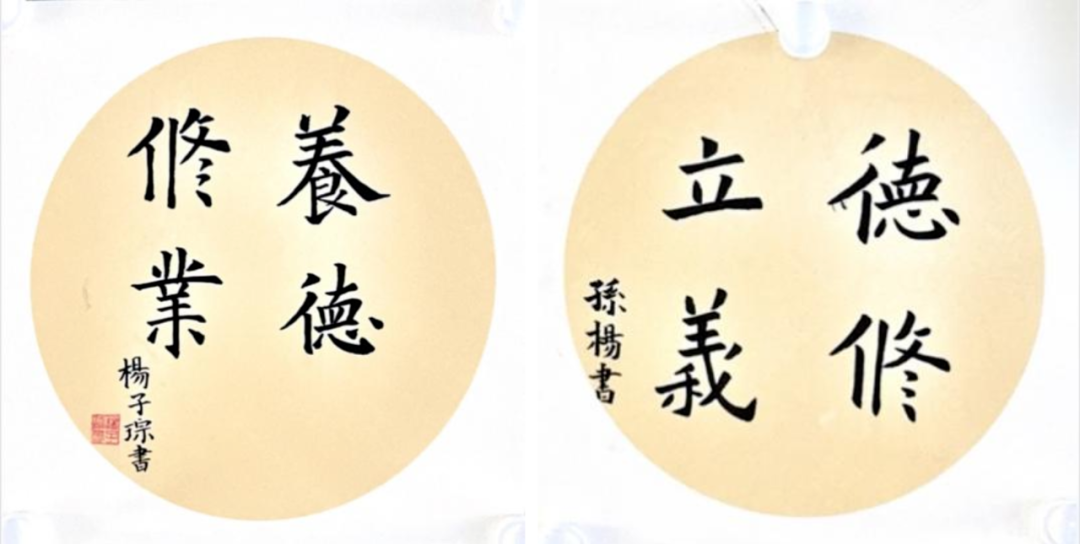 養德
修業
楊子琮書
德修
立義
孫楊書